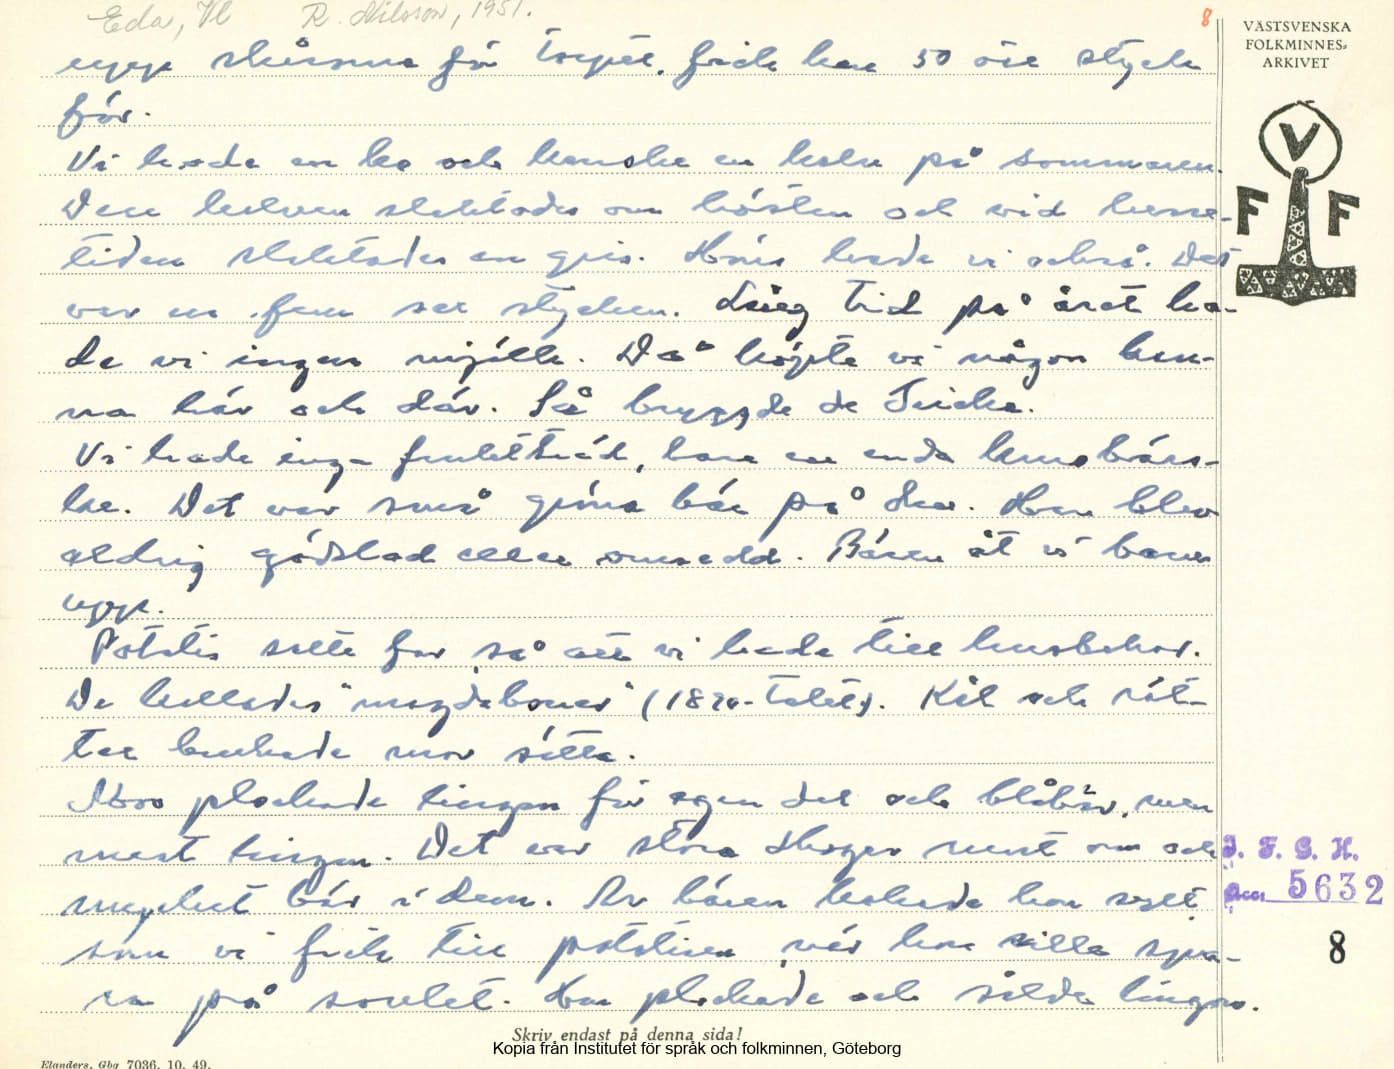 Eda, Vl R. Nilsson, 1951.
8
VÄSTSVENSKA
FOLKMINNES-
ARKIVET
V
F F
upp skårorna för torpet, fick han 50 öre styck
för.
Vi hade en ko och kanske en kalv på sommaren.
Den kalven slaktades om hösten och vid jure-
tiden slaktades en gris. Höns hade vi också. Det
var en fem sex stycken. Lång tid på året ha-
de vi ingen mjölk. Då köpte vi någon kan-
na här och där. Så bryggde de dricka.
Vi hade inga fruktträd, bara en enda krusbärs-
ke. Det var små gröna bär på den. Han blev
aldrig gödslad eller omsedd. Bären åt vi barn
upp.
Potatis satte far så att vi hade till husbehov.
De kallades "magdabonas" (1890-talet). Kål och röt-
ter brukade mor sätta.
Mor plockade lingon för egen del och blåbär, men
mest lingon. Det var stora skogar runt om och
mycket bär i dem. Av bären kokade hon sylt,
som vi fick till potatisen, när hon ville spa-
ra på sovlet. Hon plockade och sålde lingon.
I. F. G. H.
Acc. 5632
8
Skriv endast på denna sida!
Kopia från Institutet för språk och folkminnen, Göteborg
Elanders, Gbg 7036. 10. 49.